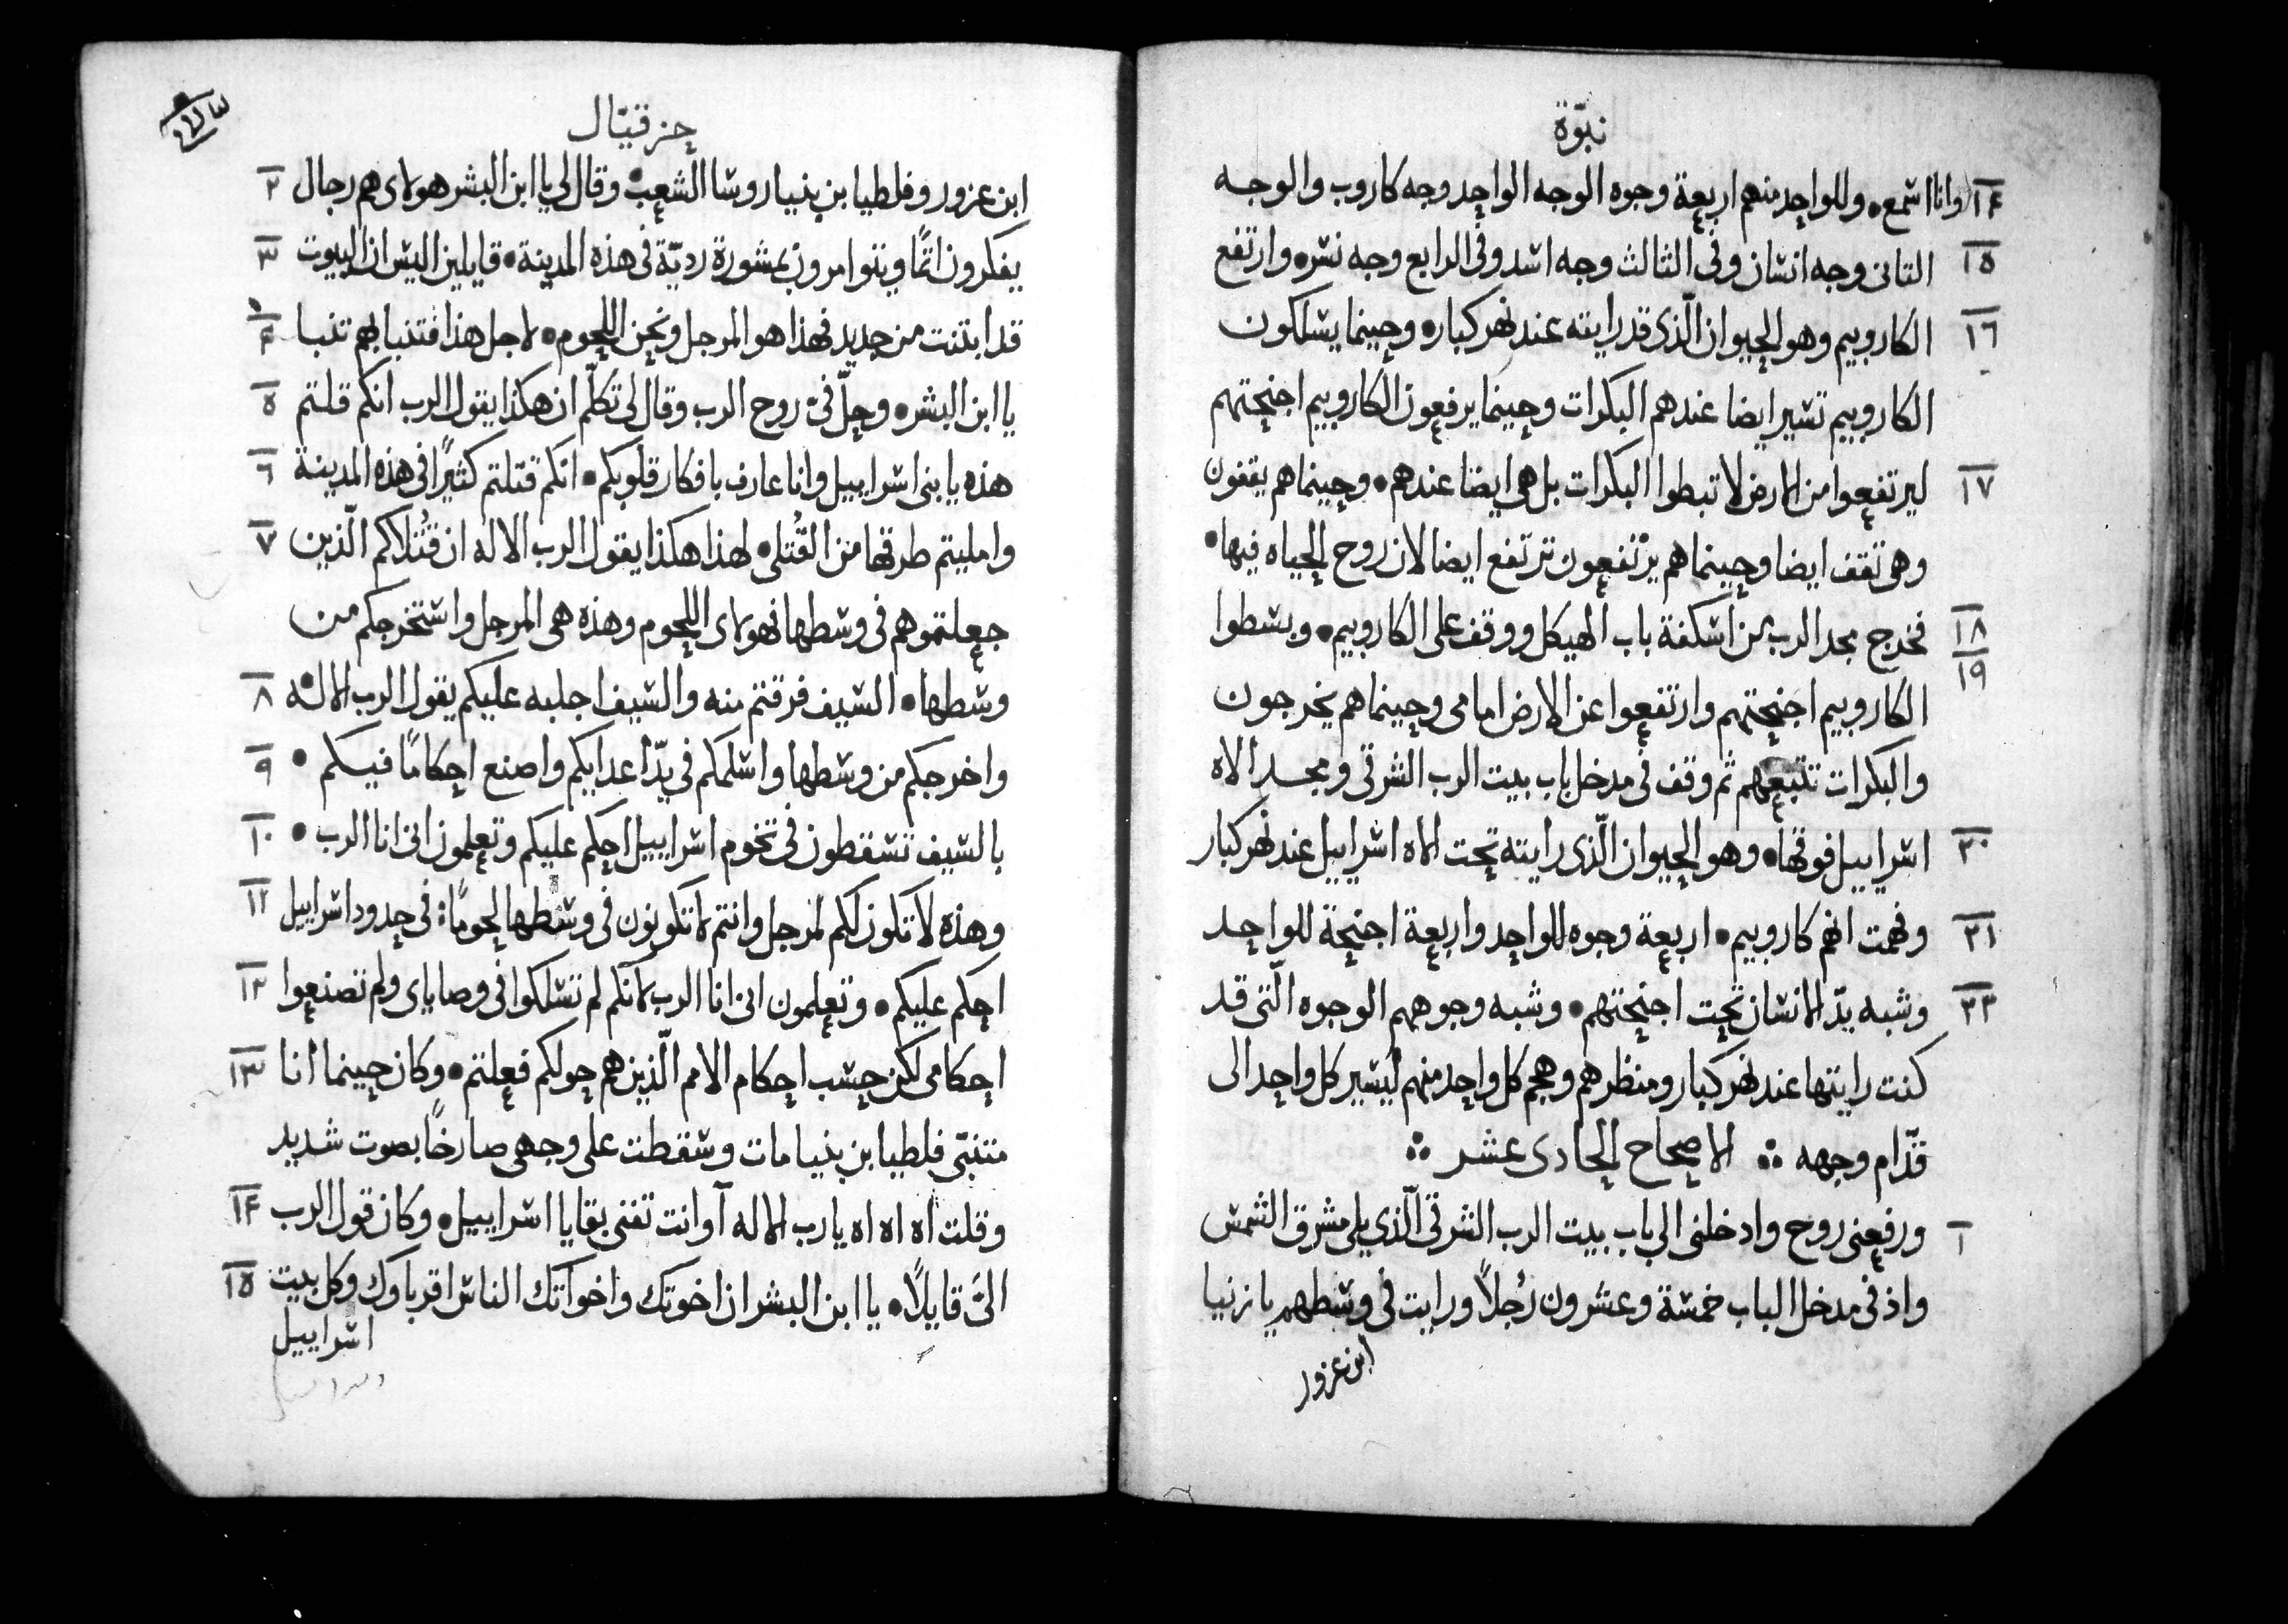 نبوّة
١٤ وانا اسمع • وللواحد منهم اربعة وجوه الوجه الواحد وجه كاروب والوجه
١٥ التانى وجه انسان وفى التالث وجه اسد وفى الرابع وجه نسر • وارتفع
١٦ الكاروبيم وهو الحيوان الّذى قد رايته عند نهر كبار • وحينما يسلكون
الكاروبيم تسير ايضا عندهم البكرات وحينما يرفعون الكاروبيم اجنحتهم
١٧ ليرتفعوا من الارض لا تبطوا البكرات بل هى ايضا عندهم • وحينما هم يقفون
وهى تقف ايضا وحينما هم يرتفعون ترتفع ايضا لان روح الحياه فيها •
١٨ فخرج مجد الرب من اسكفة باب الهيكل ووقف على الكاروبيم • وبسطوا
١٩ الكاروبيم اجنحتهم وارتفعوا عن الارض امامى وحينما هم يخرجون
والبكرات تتبعهم ثم وقف فى مدخل باب بيت الرب الشرقى ومجد الاه
٢٠ اسراييل فوقها • وهو الحيوان الّذى رايته تحت الاه اسراييل عند نهر كبار
٢١ وفهمت انهم كاروبيم • اربعة وجوه للواحد واربعة اجنحة للواحد
٢٢ وشبه يدّ الانسان تحت اجنحتهم • وشبه وجوههم الوجوه الّتى قد
كنت رايتها عند نهر كبار ومنظرهم وهجم كل واحد منهم ليسير كل واحد الى
قدّام وجهه ⁘ الاصحاح الحادى عشر ⁘
١ ورفعنى روح وادخلنى الى باب بيت الرب الشرقى الّذى يلى مشرق الشمس
واذ فى مدخل الباب خمسة وعشرون رُجلاً ورايت فى وسطهم يازنيا
ابن عزور
حزقيّال
٢ ابن عزور وفلطيا ابن بنيا روسا الشعب • وقال لى يا ابن البشر هولاى هم رجال
٣ يفكرون اثمًا ويتوامرون بمشورة رديّة فى هذه المدينة • قايلين اليس ان البيوت
٤ قد ابتنت من جديد فهذا هو المرجل ونحن اللحوم • لاجل هذا فتنبا بهم تنبا
٥ يا ابن البشر • وحلّ فىّ روح الرب وقال لى تكلّم ان هكذا يقول الرب انكم قلتم
٦ هذه يا بنى اسراييل وانا عارف بافكار قلوبكم • انكم قتلتم كثيرًا فى هذه المدينة
٧ وامليتم طرقها من القُتلى • لهذا هكذا يقول الرب الاله ان قُتلاكم الّذين
جعلتموهم فى وسطها فهولاى اللحوم وهذه هى المرجل واستخرجكم من
٨ وسطها • السيف فرقتم منه والسيف اجلبه عليكم يقول الرب الاله
٩ واخرجكم من وسطها واسلمكم فى يدّ اعدايكم واصنع احكامًا فيكم •
١٠ بالسيف تسقطون فى تخوم اسراييل احكم عليكم وتعلمون انى انا الرب •
١١ وهذه لا تكون لكم لمرجل وانتم لا تكونون فى وسطها لحومًا: فى حدود اسراييل
١٢ احكم عليكم • وتعلمون انى انا الرب لانكم لم تسلكوا فى وصاياى ولم تصنعوا
١٣ احكامى لكن حسب احكام الامم الّذين هم حولكم فعلتم • وكان حينما انا
متنبّى فلطيا بن بنيا مات وسقطت على وجهى صارخًا بصوت شديد
١٤ وقلت اه اه اه يا رب الاله آوانت تفنى بقايا اسراييل • وكان قول الرب
١٥ الىَّ قايلاً • يا ابن البشر ان اخوتك واخواتك الناس اقرباوك وكل بيت
اسراييل